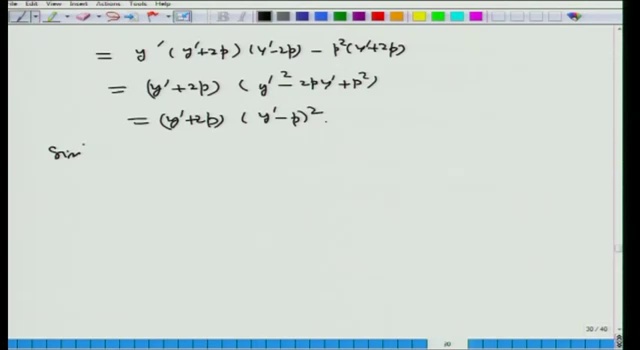 File Edit View Insert Actions Tools Help
= y'(y'+2p)(y'-2p) - p²(y'+2p)
= (y'+2p) (y'² - 2py' + p²)
= (y'+2p) (y'-p)².
Sim
30 / 40
30